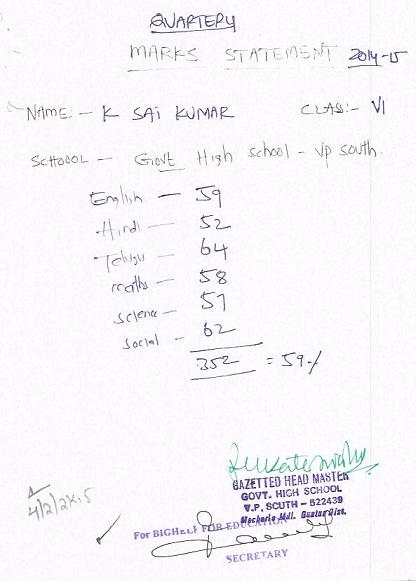 QUARTERY
MARKS STATEMENT 2014-15
NAME:- K SAI KUMAR CLASS:- VI
SCHOOOL - Govt High school - VP south.
English - 59
Hindi - 52
Telugu - 64
maths - 58
science - 57
social - 62
352 = 59%
GAZETTED HEAD MASTER
GOVT. HIGH SCHOOL
V.P. SOUTH - 522439
Macherla Mdl. Guntur Dist.
4/2/2K15
For BIGHELP FOR EDUCATION
SECRETARY